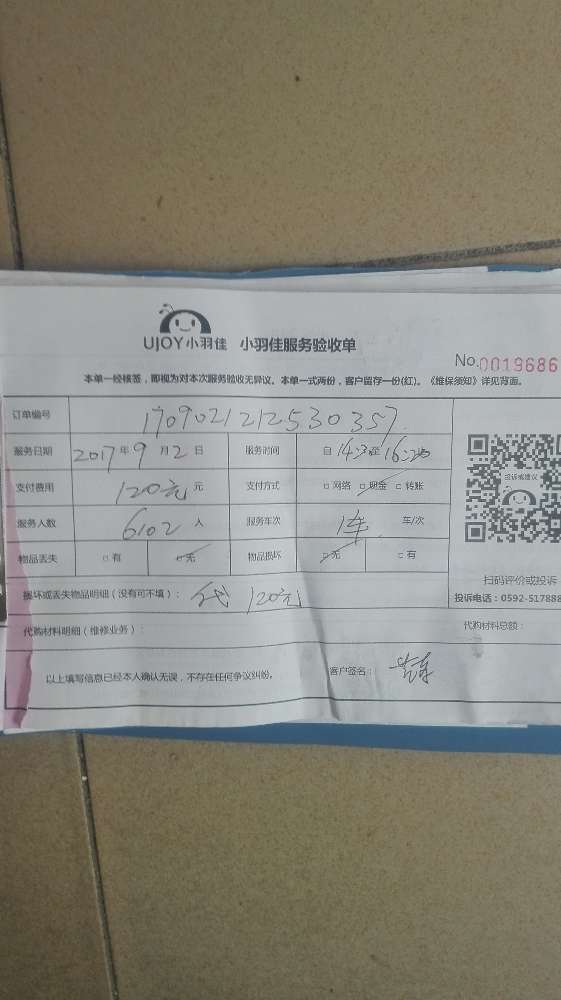 UJOY小羽佳 小羽佳服务验收单
No.0019686
本单一经核签，即视为对本次服务验收无异议。本单一式两份，客户留存一份(红)。《维保须知》详见背面。
订单编号 170902121253 0357
服务日期 2017年9月2日 服务时间 自14:30至16:20
支付费用 120元 元 支付方式 □网络 □现金 □转账
服务人数 6102 人 服务车次 1车 车/次
物品丢失 □有 □无 物品损坏 □无 □有
投诉或建议
扫码评价或投诉
投诉电话：0592-517888
损坏或丢失物品明细（没有可不填）： 120元
代购材料明细（维修业务）： 代购材料总额：
以上填写信息已经本人确认无误，不存在任何争议纠纷。 客户签名：